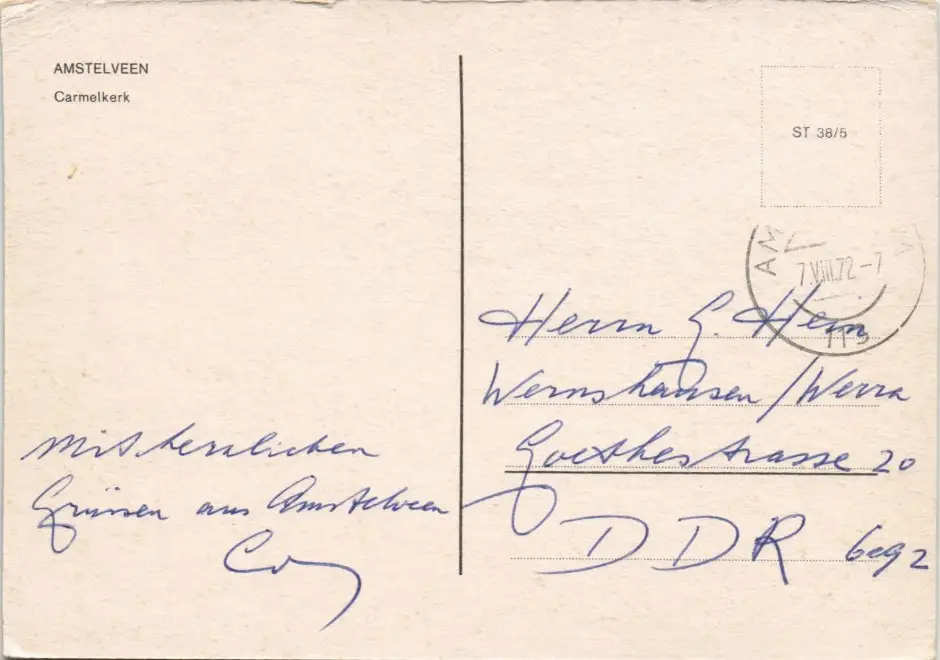 AMSTELVEEN
Carmelkerk
Mit herzlichen
Grüssen aus Amstelveen
ST 38/5
AM
7.VIII.72-7
Herrn G.
Wernshausen/Werra
Goethestrasse 20
DDR 6092